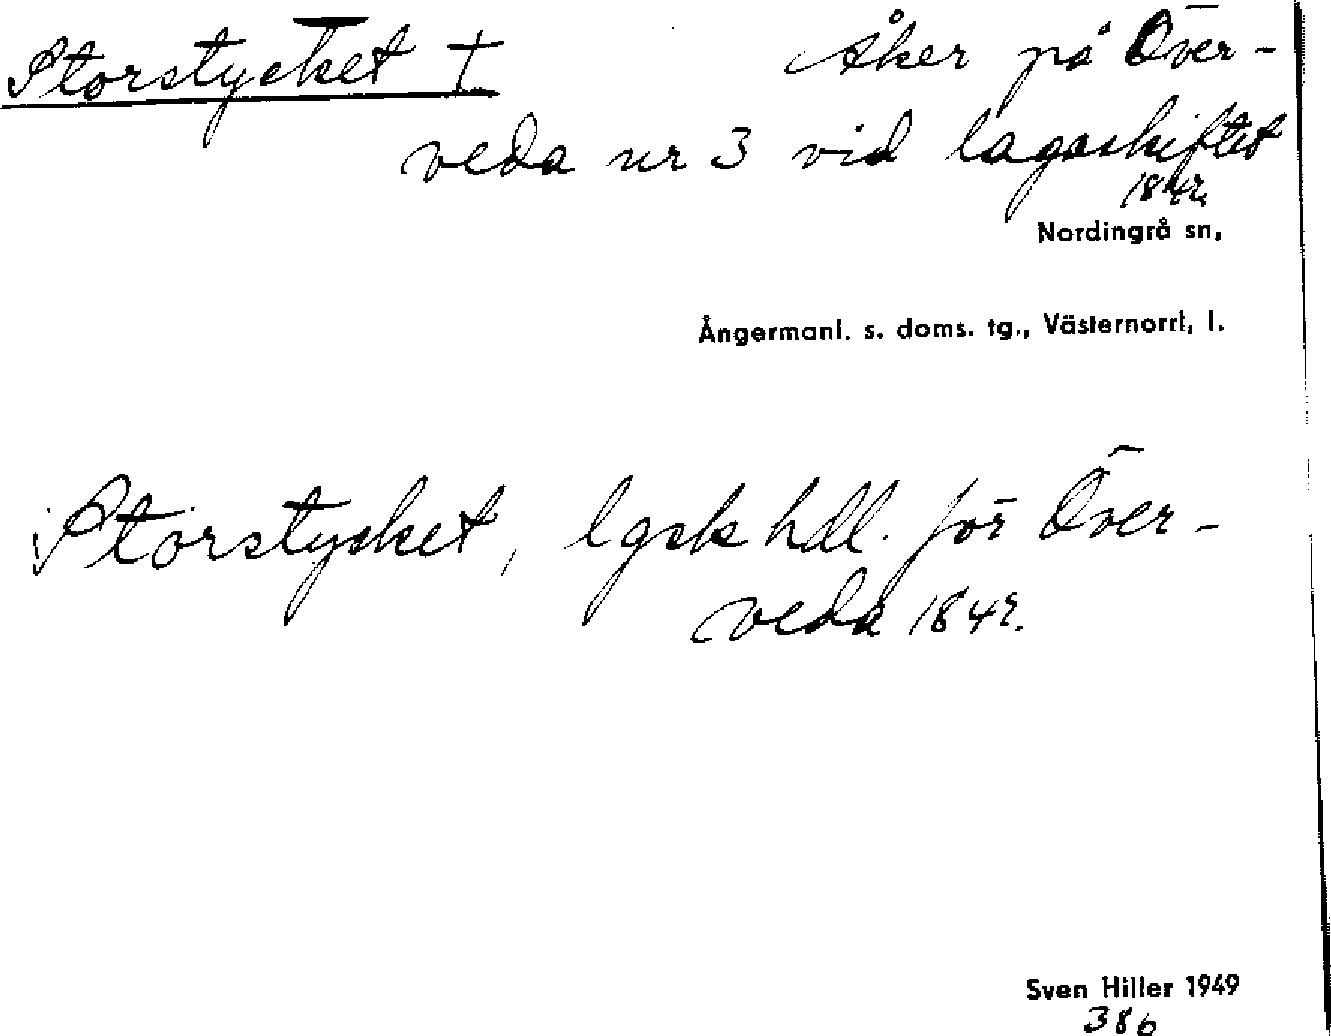 Storstycket † Åker på Över-
veda nr 3 vid lagaskiftet
1842
Nordingrå sn,
Ångermanl. s. doms. tg., Västernorrl, l.
Storstycket, lgsk hdl. för Över-
veda 1842.
Sven Hiller 1949
386